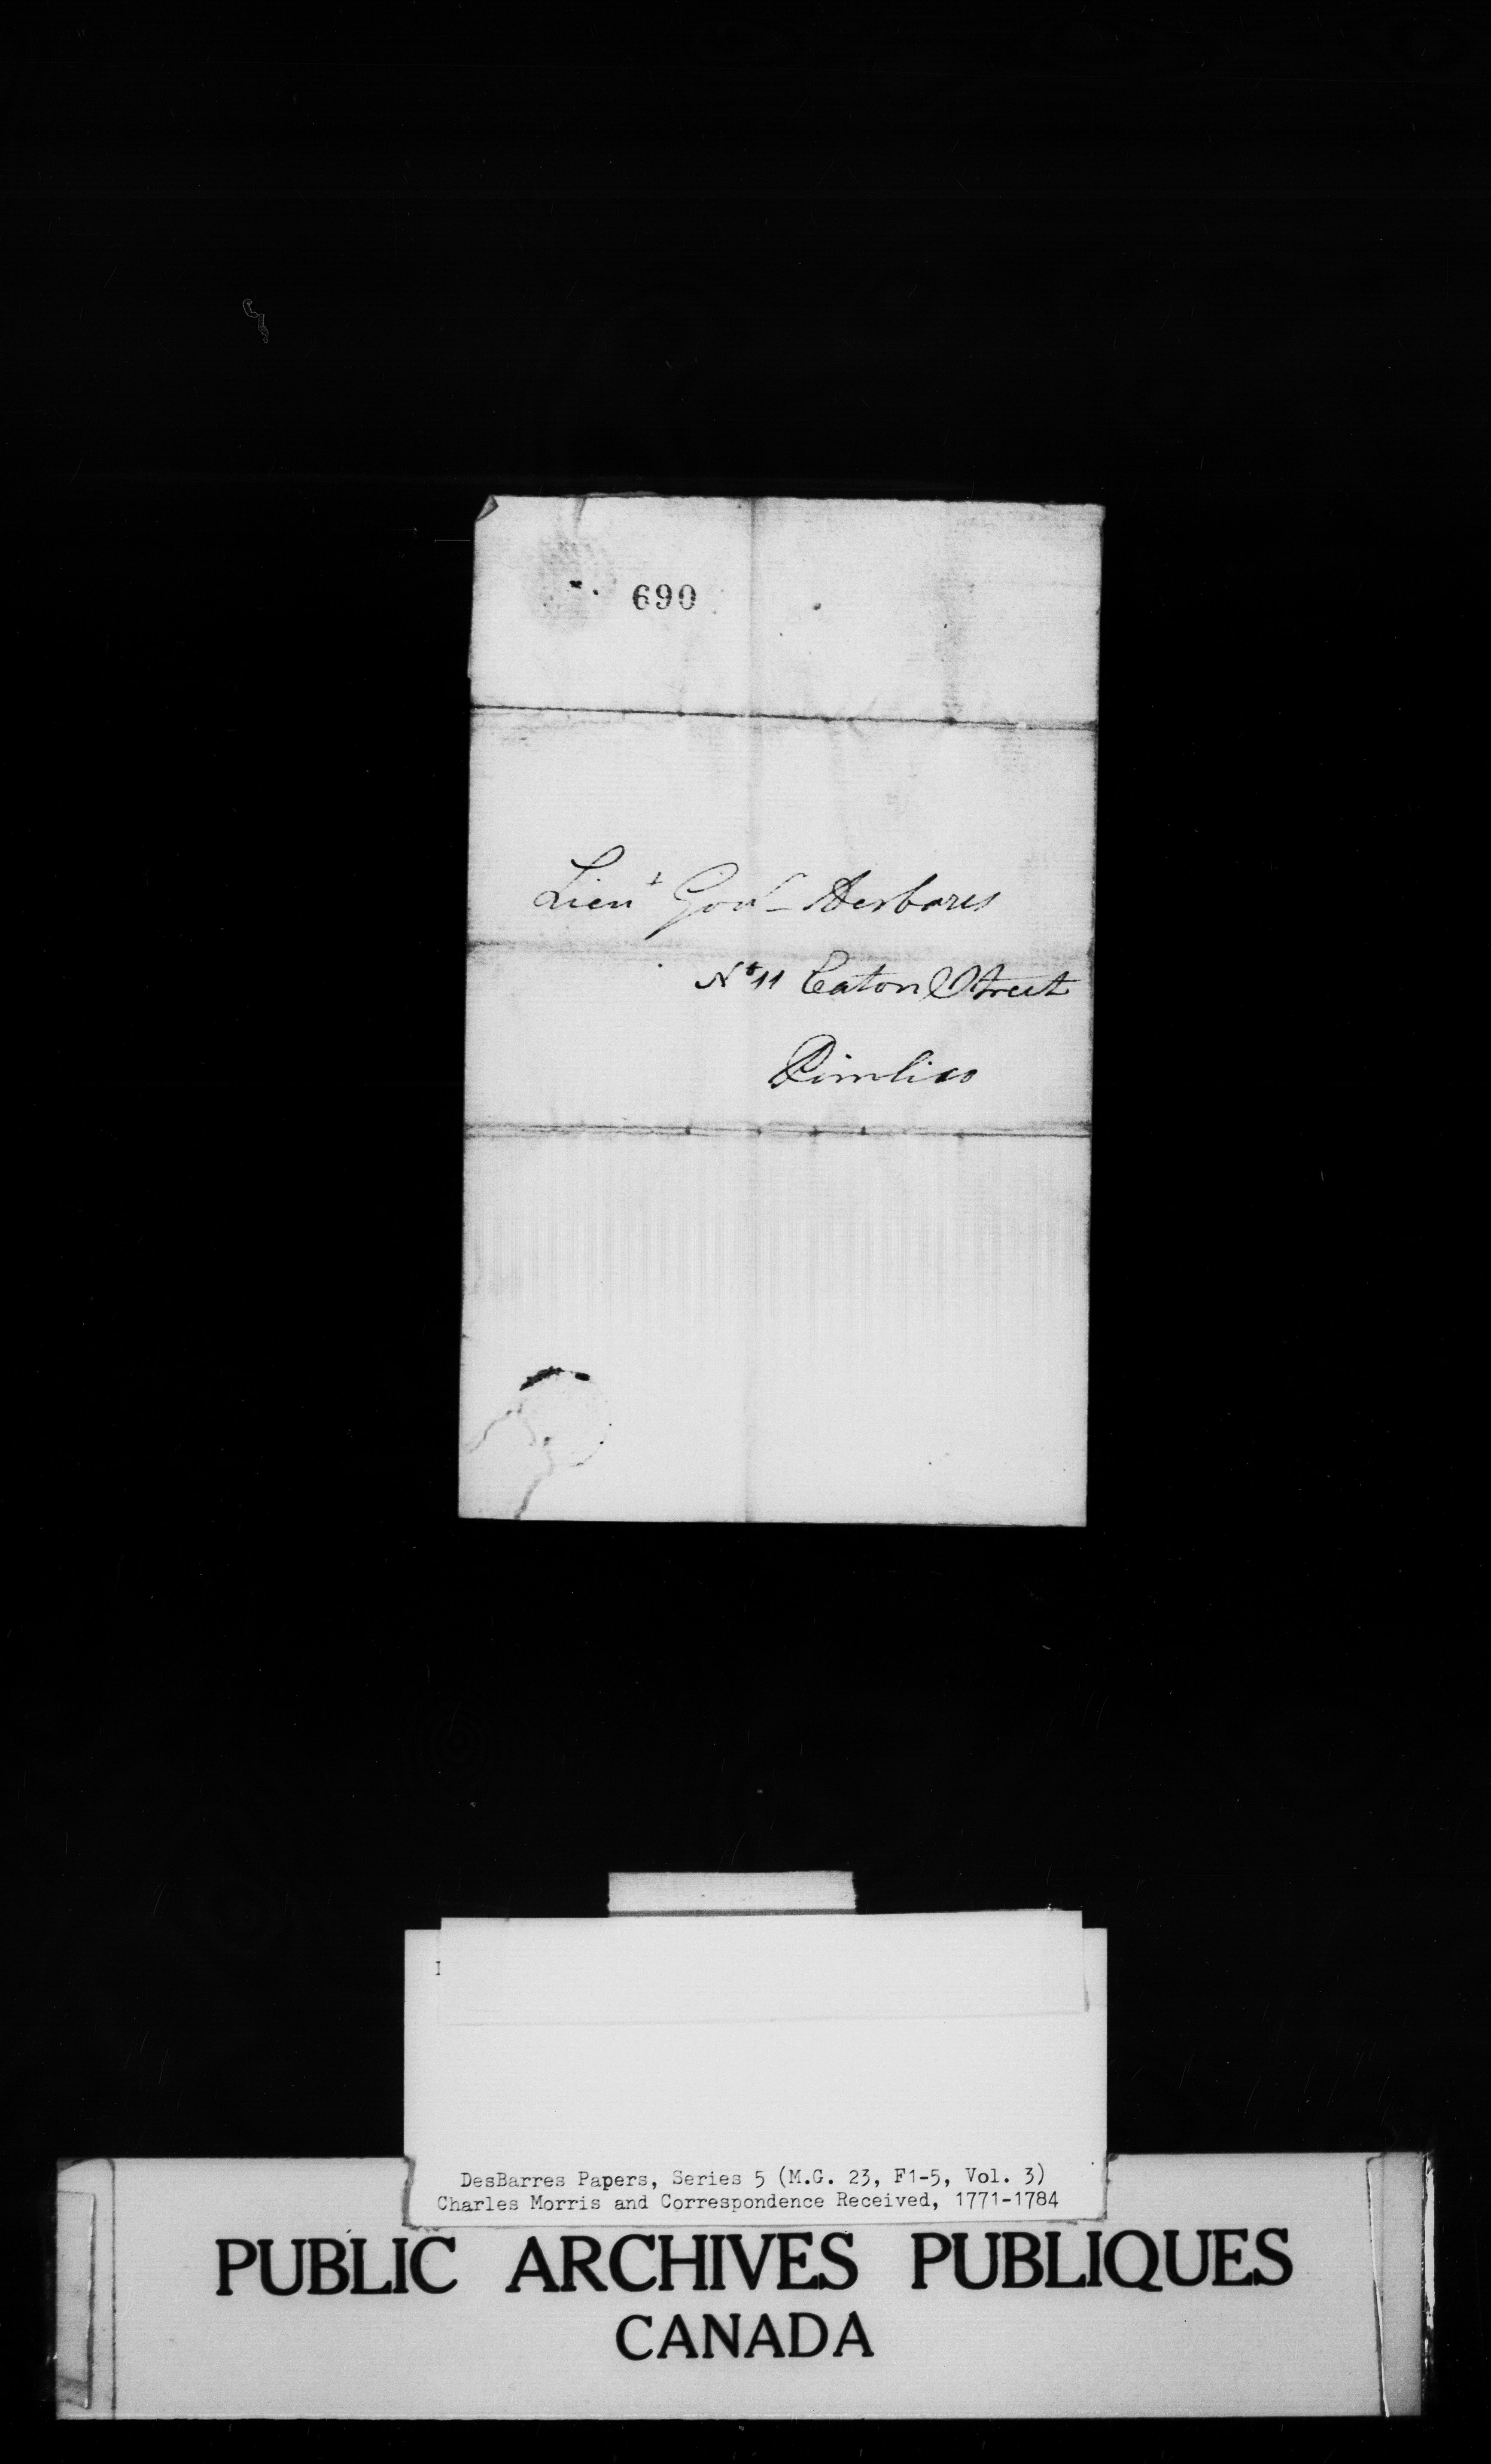 690
Lieut Govr Desbares
No 11 Eaton Street
Pimlico
I
DesBarres Papers, Series 5 (M.G. 23, F1-5, Vol. 3)
Charles Morris and Correspondence Received, 1771-1784
PUBLIC ARCHIVES PUBLIQUES
CANADA